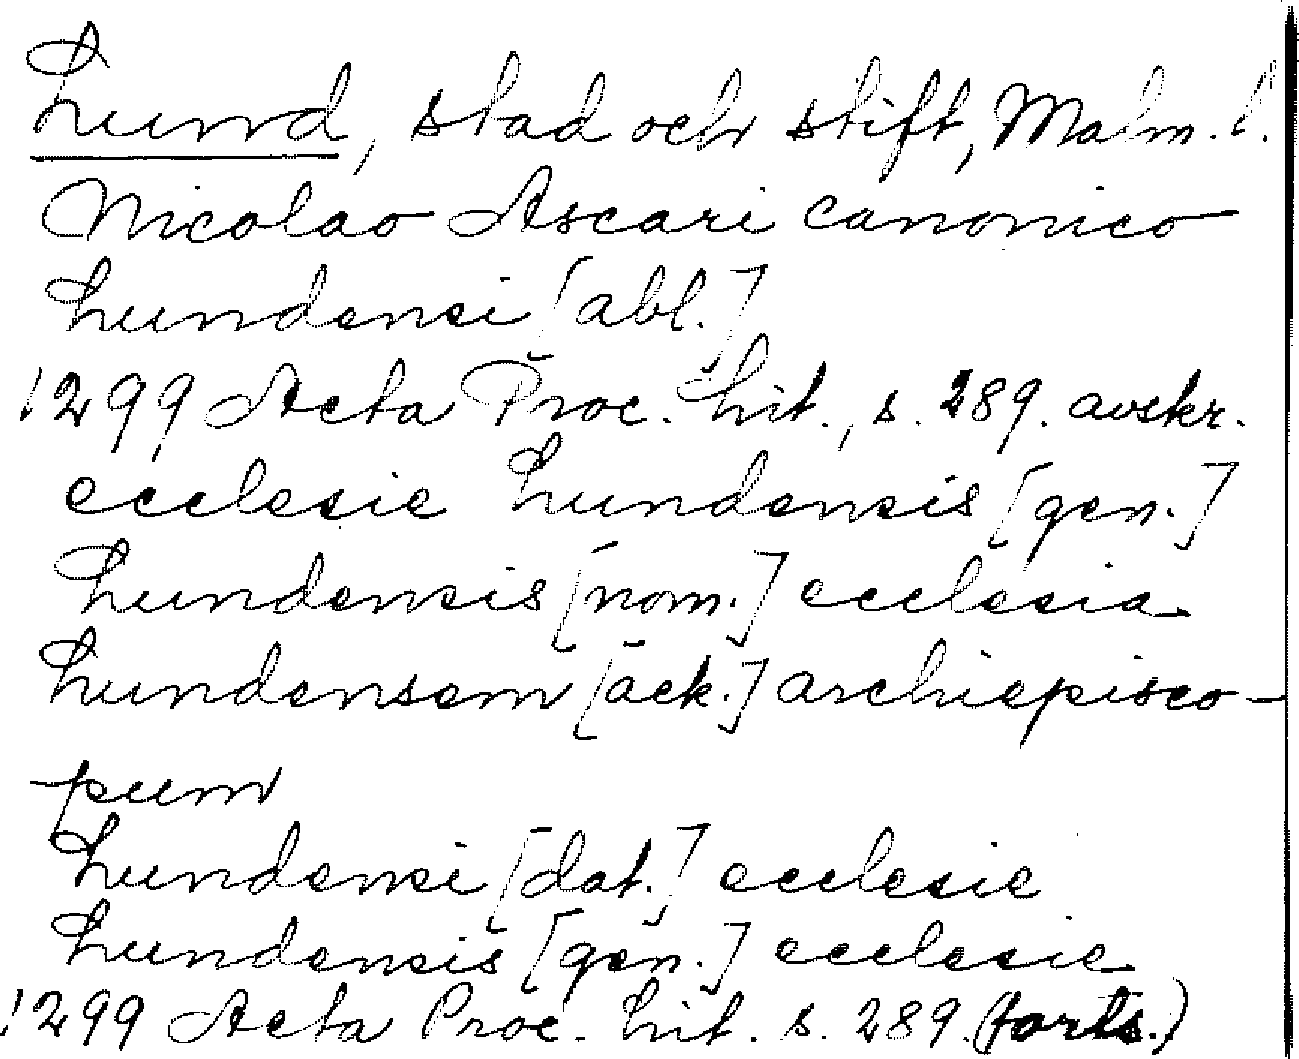 Lund, stad och stift, Malm. l.
Nicolao Ascari canonico
Lundensi [abl.]
1299 Acta Proc. Lit., s. 289. avskr.
ecclesie Lundensis [gen.]
Lundensis [nom.] ecclesia
Lundensem [ack.] archiepisco-
pum
Lundensi [dat.] ecclesie
Lundensis [gen.] ecclesie
1299 Acta Proc. Lit. s. 289. (forts.)